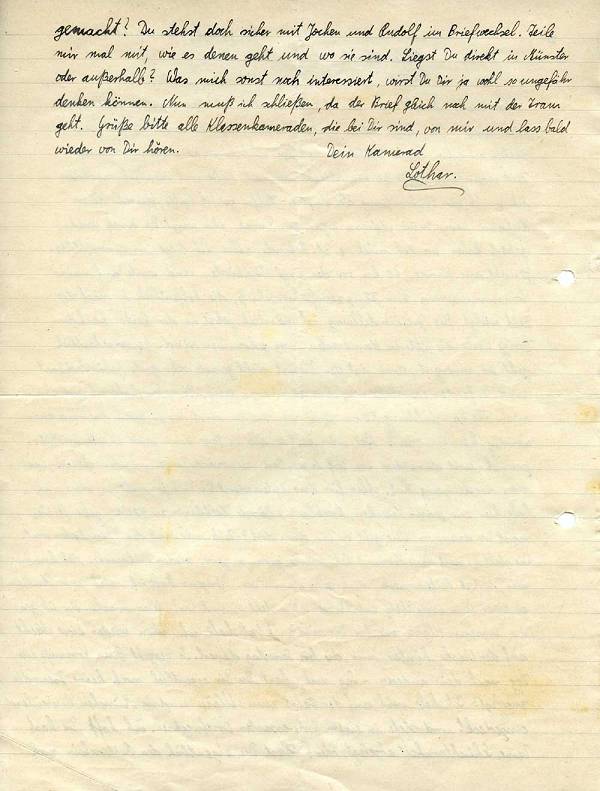 gemacht? Du stehst doch sicher mit Jochen und Rudolf im Briefwechsel. Teile
mir mal mit, wie es denen geht und wo sie sind. Liegst Du direkt in Münster
oder außerhalb? Was mich sonst noch interessiert, wirst Du Dir ja wohl so ungefähr
denken können. Nun muß ich schließen, da der Brief gleich noch mit der Tram
geht. Grüße bitte alle Klassenkameraden, die bei Dir sind, von mir und lass bald
wieder von Dir hören. Dein Kamerad
Lothar.